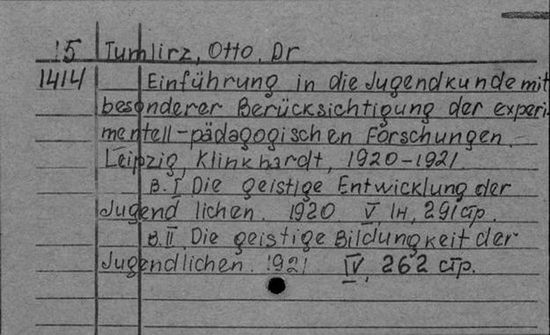 15 Tumlirz, Otto, Dr
1414 Einführung in die Jugendkunde mit
besonderer Berücksichtigung der experi-
mentell-pädagogischen Forschungen.-
Leipzig, Klinkhardt, 1920-1921.
B.I Die geistige Entwicklung der
Jugendlichen. 1920 V 1H, 291 стр.
B.II Die geistige Bildungkeit der
Jugendlichen. 1921 IV, 262 стр.